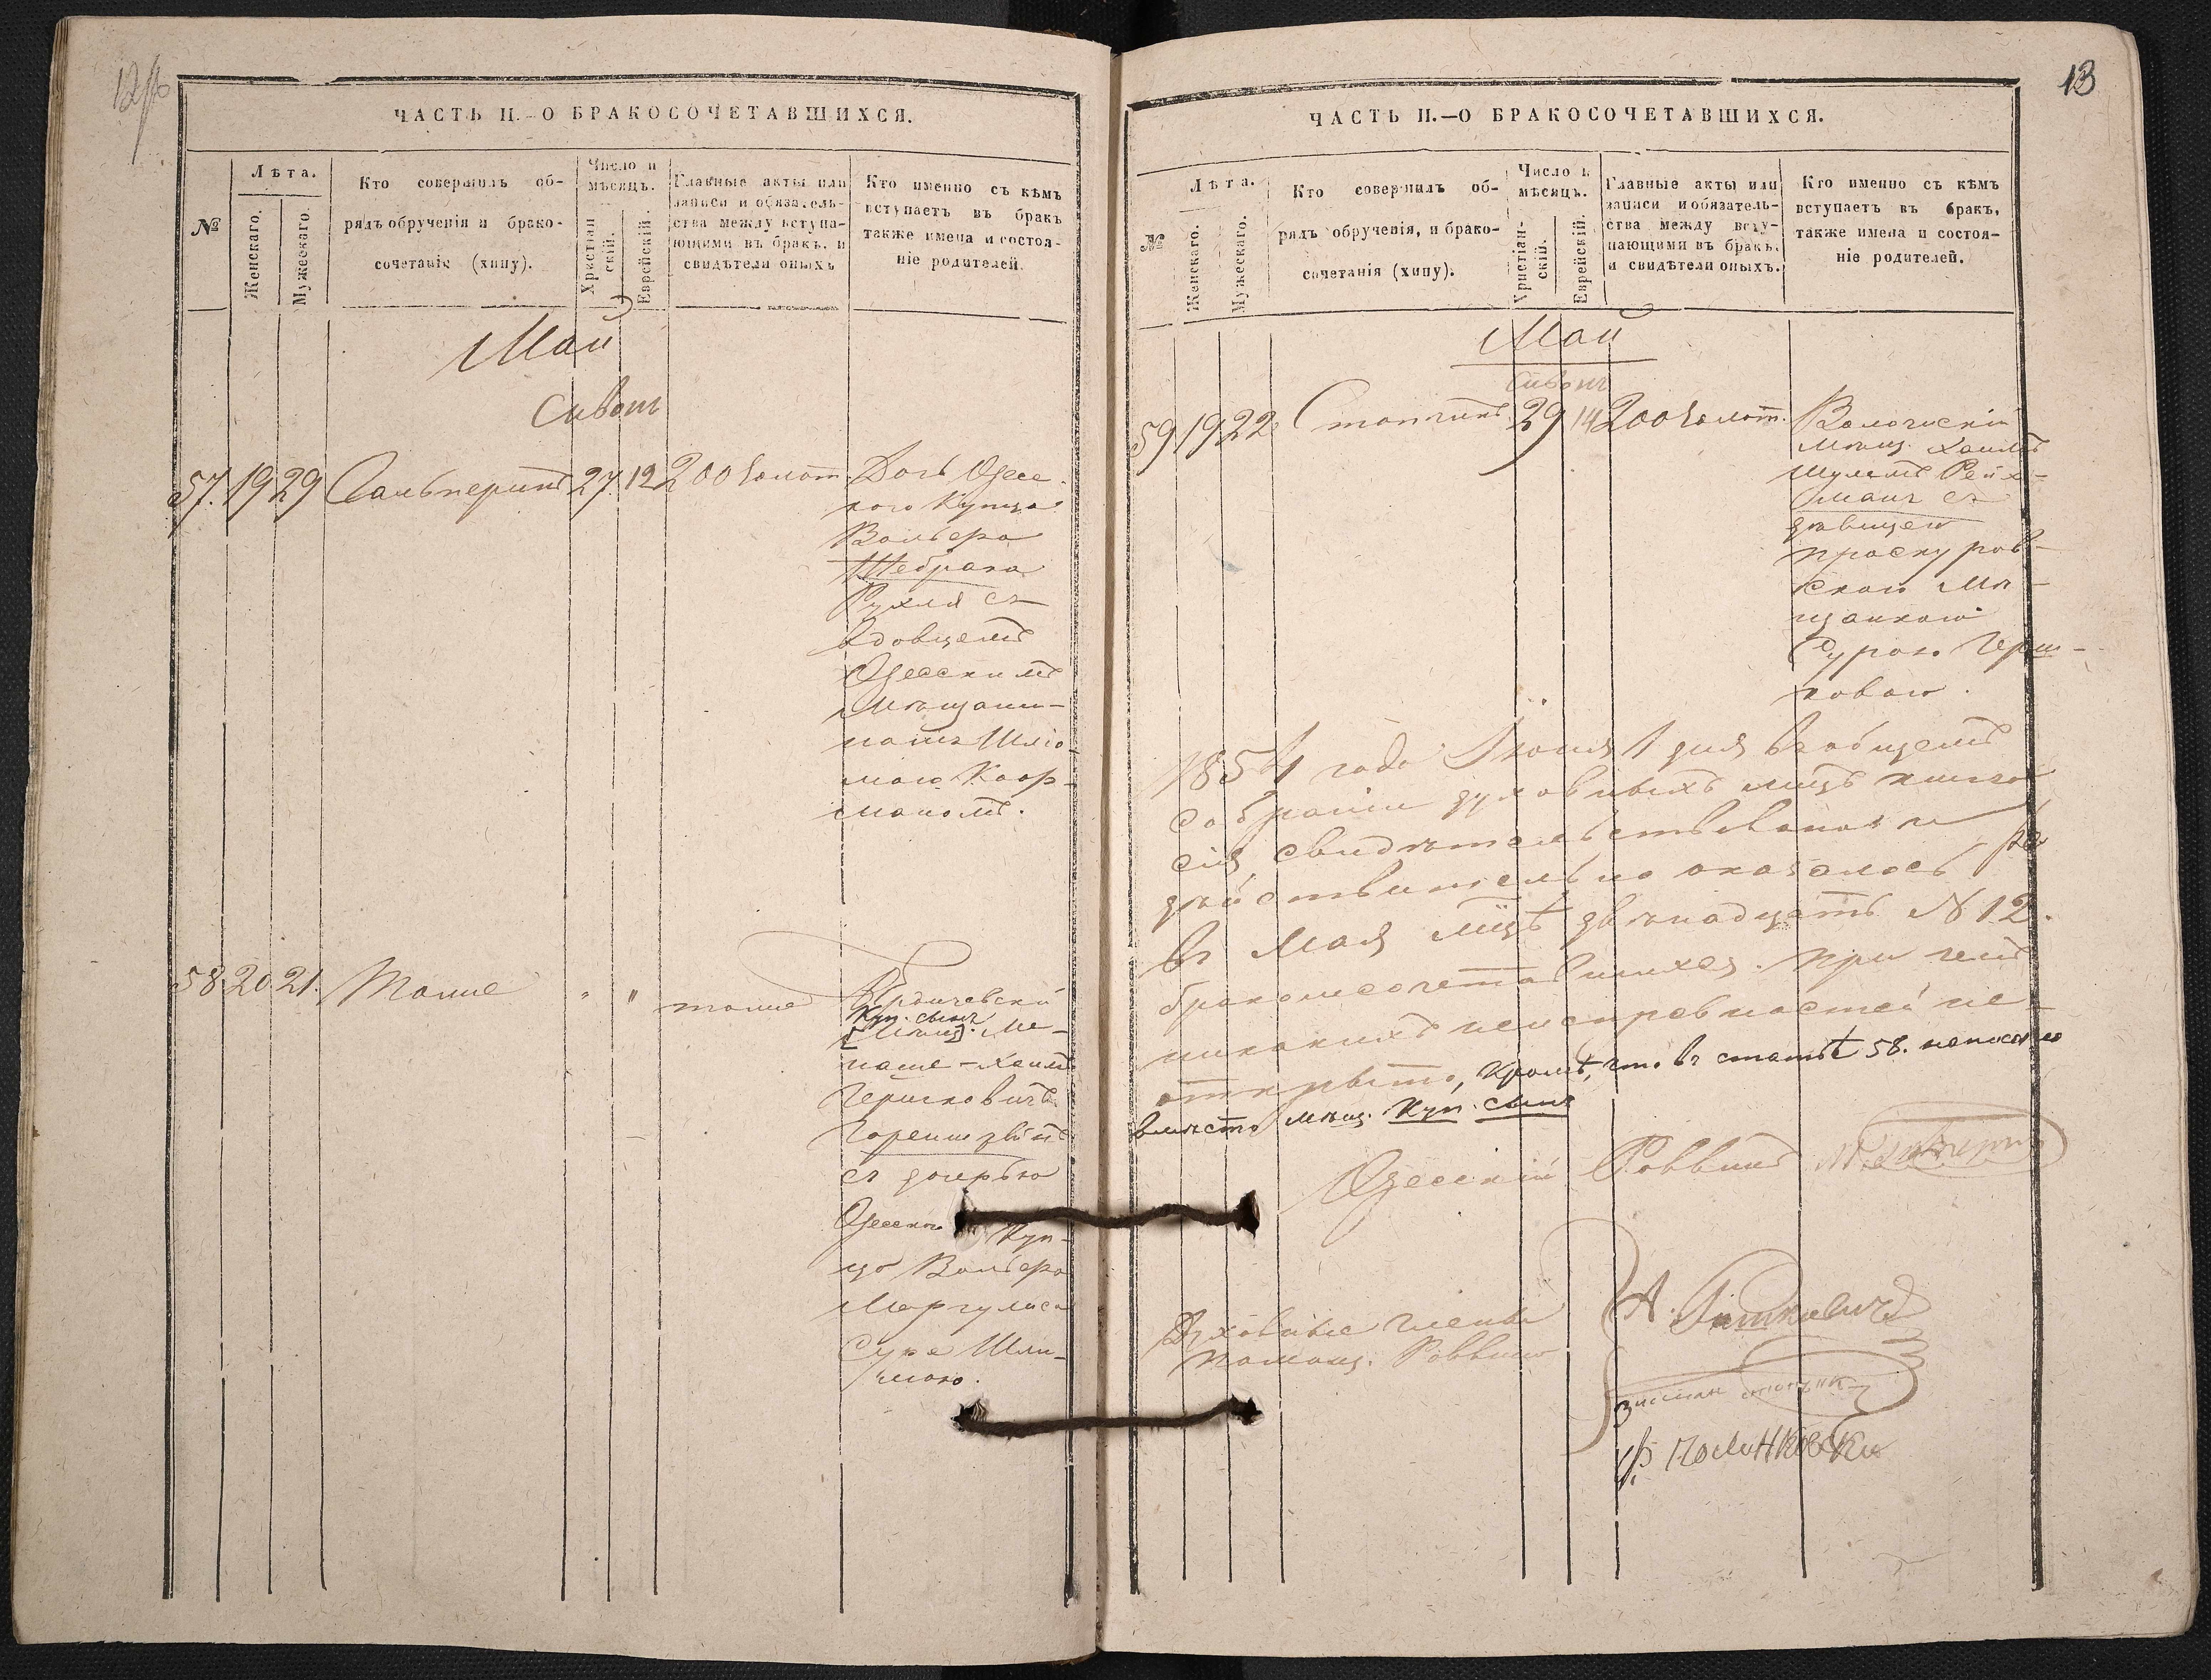 12об
ЧАСТЬ II.–О БРАКОСОЧЕТАВШИХСЯ.
№
Лѣта.
Женскаго.
Мужескаго.
Кто совершилъ об-
рядъ обрученія и брако-
сочетанія (хипу).
Число и
мѣсяцъ.
Христіан
скій.
Еврейскій.
Главные акты или
записи и обязатель-
ства между вступа-
ющими въ бракъ, и
свидѣтели оныхъ
Кто именно съ кѣмъ
вступаетъ въ бракъ
также имена и состоя-
ніе родителей.
Май
Сивонъ
57. 19 29 Гальперинъ 27. 12 200 золот. Дочь Одес-
кого Купца
Вольфа
Рухля съ
вдовцемъ
Одесскимъ
Мѣщани-
номъ Шлио-
мою Коор-
маномъ.
58 20 21. Тоже " " тоже Бердичевскій
Куп. сынъ
[Мѣщ]. Ме-
наше-Хаимъ
Гершковичъ
съ дочерью
Одесск. Куп-
ца Вольфа
Маргулиса
Сура Шли-
мою.
13
ЧАСТЬ II.—О БРАКОСОЧЕТАВШИХСЯ.
№
Лѣта.
Женскаго.
Мужескаго.
Кто совершилъ об-
рядъ обрученія, и брако-
сочетанія (хипу).
Число и
мѣсяцъ.
Христіан-
скій.
Еврейскій.
Главные акты или
записи и обязатель-
ства между всту-
пающими въ бракъ.
и свидѣтели оныхъ.
Кто именно съ кѣмъ
вступаетъ въ бракъ,
также имена и состоя-
ніе родителей.
Май
Сивонъ
59 19 22 29 14 200 золот. Волочискій
мѣщ. Хаимъ
Шулимъ Рейх-
манъ съ
дѣвицею
Проскуров-
скою Мѣ-
щанкою
Сурою Герш-
ковою.
1854 года Іюня 1 дня въ общемъ
собраніи духовныхъ лицъ книга
сія свидѣтельствована и
дѣйствительно оказалось
въ Маѣ м-цѣ двѣнадцать N 12.
бракомсочетавшихся. При чемъ
никакихъ неисправностей не
открыто, кромѣ, что въ статьѣ 58. написано
вмѣсто мѣщ. Куп. сынъ
Одесскій Раввинъ
Духовные члены
помощ. Раввина